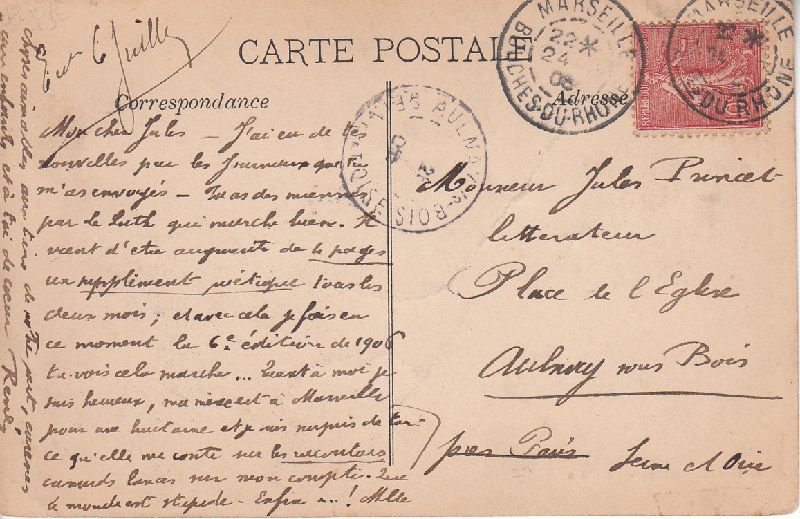 Ever 6 Juillet
CARTE POSTALE
Correspondance
Adresse
Mon cher Jules – J'ai eu de tes
nouvelles par les Journaux que tu
m'as envoyés – Tu as des miennes
par le Luth qui marche bien. Il
vient d'être augmenté de 4 pages
un supplément poétique tous les
deux mois ; et avec cela je fais en
ce moment la 6e édition de 1906
tu vois cela marche ... Quant à moi je
suis heureux, ma mère est à Marseille
pour une huitaine et je suis surpris de
ce qu'elle me conte sur les
canards lancés sur mon compte. Que
le monde est stupide – Enfin ...! Mille
choses aimables au tiens de notre part,
aux enfants et à toi de cœur René
Monsieur Jules Princet
litterateur
Place de l'Eglise
Aulnay sous Bois
près Paris
Seine et Oise
MARSEILLE
22 *
24
06
BOUCHES-DU-RHONE
MARSEILLE
DU-RHONE
AULNAY-S-BOIS